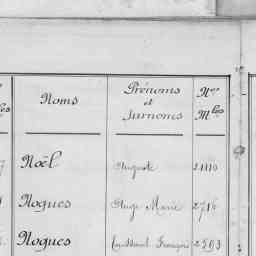 Noms
Prénoms
et
Surnoms
Nos
Mles
Noël Auguste
Nogues Marie 2716
Nogues François 2593